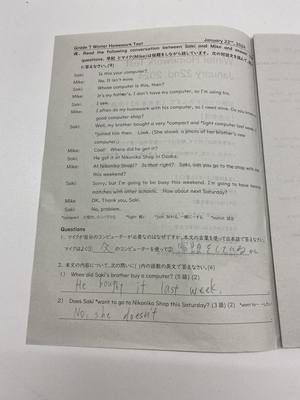 Grade 7 Winter Homework Test
January 22nd, 2024
Read the following conversation between Saki and Mike and answer the
questions.
Saki: Is this your computer?
Mike: No. It isn't mine.
Saki: Whose computer is this, then?
Mike: It's my father's. I don't have my computer, so I'm using his.
Saki: I see.
Mike: I often do my homework with his computer, so I need mine. Do you know
good computer shop?
Saki: Well, my brother bought a very *compact and *light computer last
*joined him then. Look. (She shows a photo of her brother's new
computer.)
Mike: Cool! Where did he get it?
Saki: He got it at Nikoniko Shop in Osaka.
Mike: At Nikoniko Shop? Is that right? Saki, can you go to the shop with me
this weekend?
Saki: Sorry, but I'm going to be busy this weekend. I'm going to have tennis
matches with other schools. How about next Saturday?
Mike: OK. Thank you, Saki.
Saki: No, problem.
Questions
1. マイクが自分のコンピューターが必要なのはなぜですか。本文の言葉を使って日本語で答えなさい。
マイクはよく① 父 のコンピューターを使って②
2. 本文の内容について、次の問いに( )内の語数の英文で答えなさい。(4)
1) When did Saki's brother buy a computer? (5 語) (2)
He bought it last week.
2) Does Saki *want to go to Nikoniko Shop this Saturday? (3 語) (2)
No, she doesn't